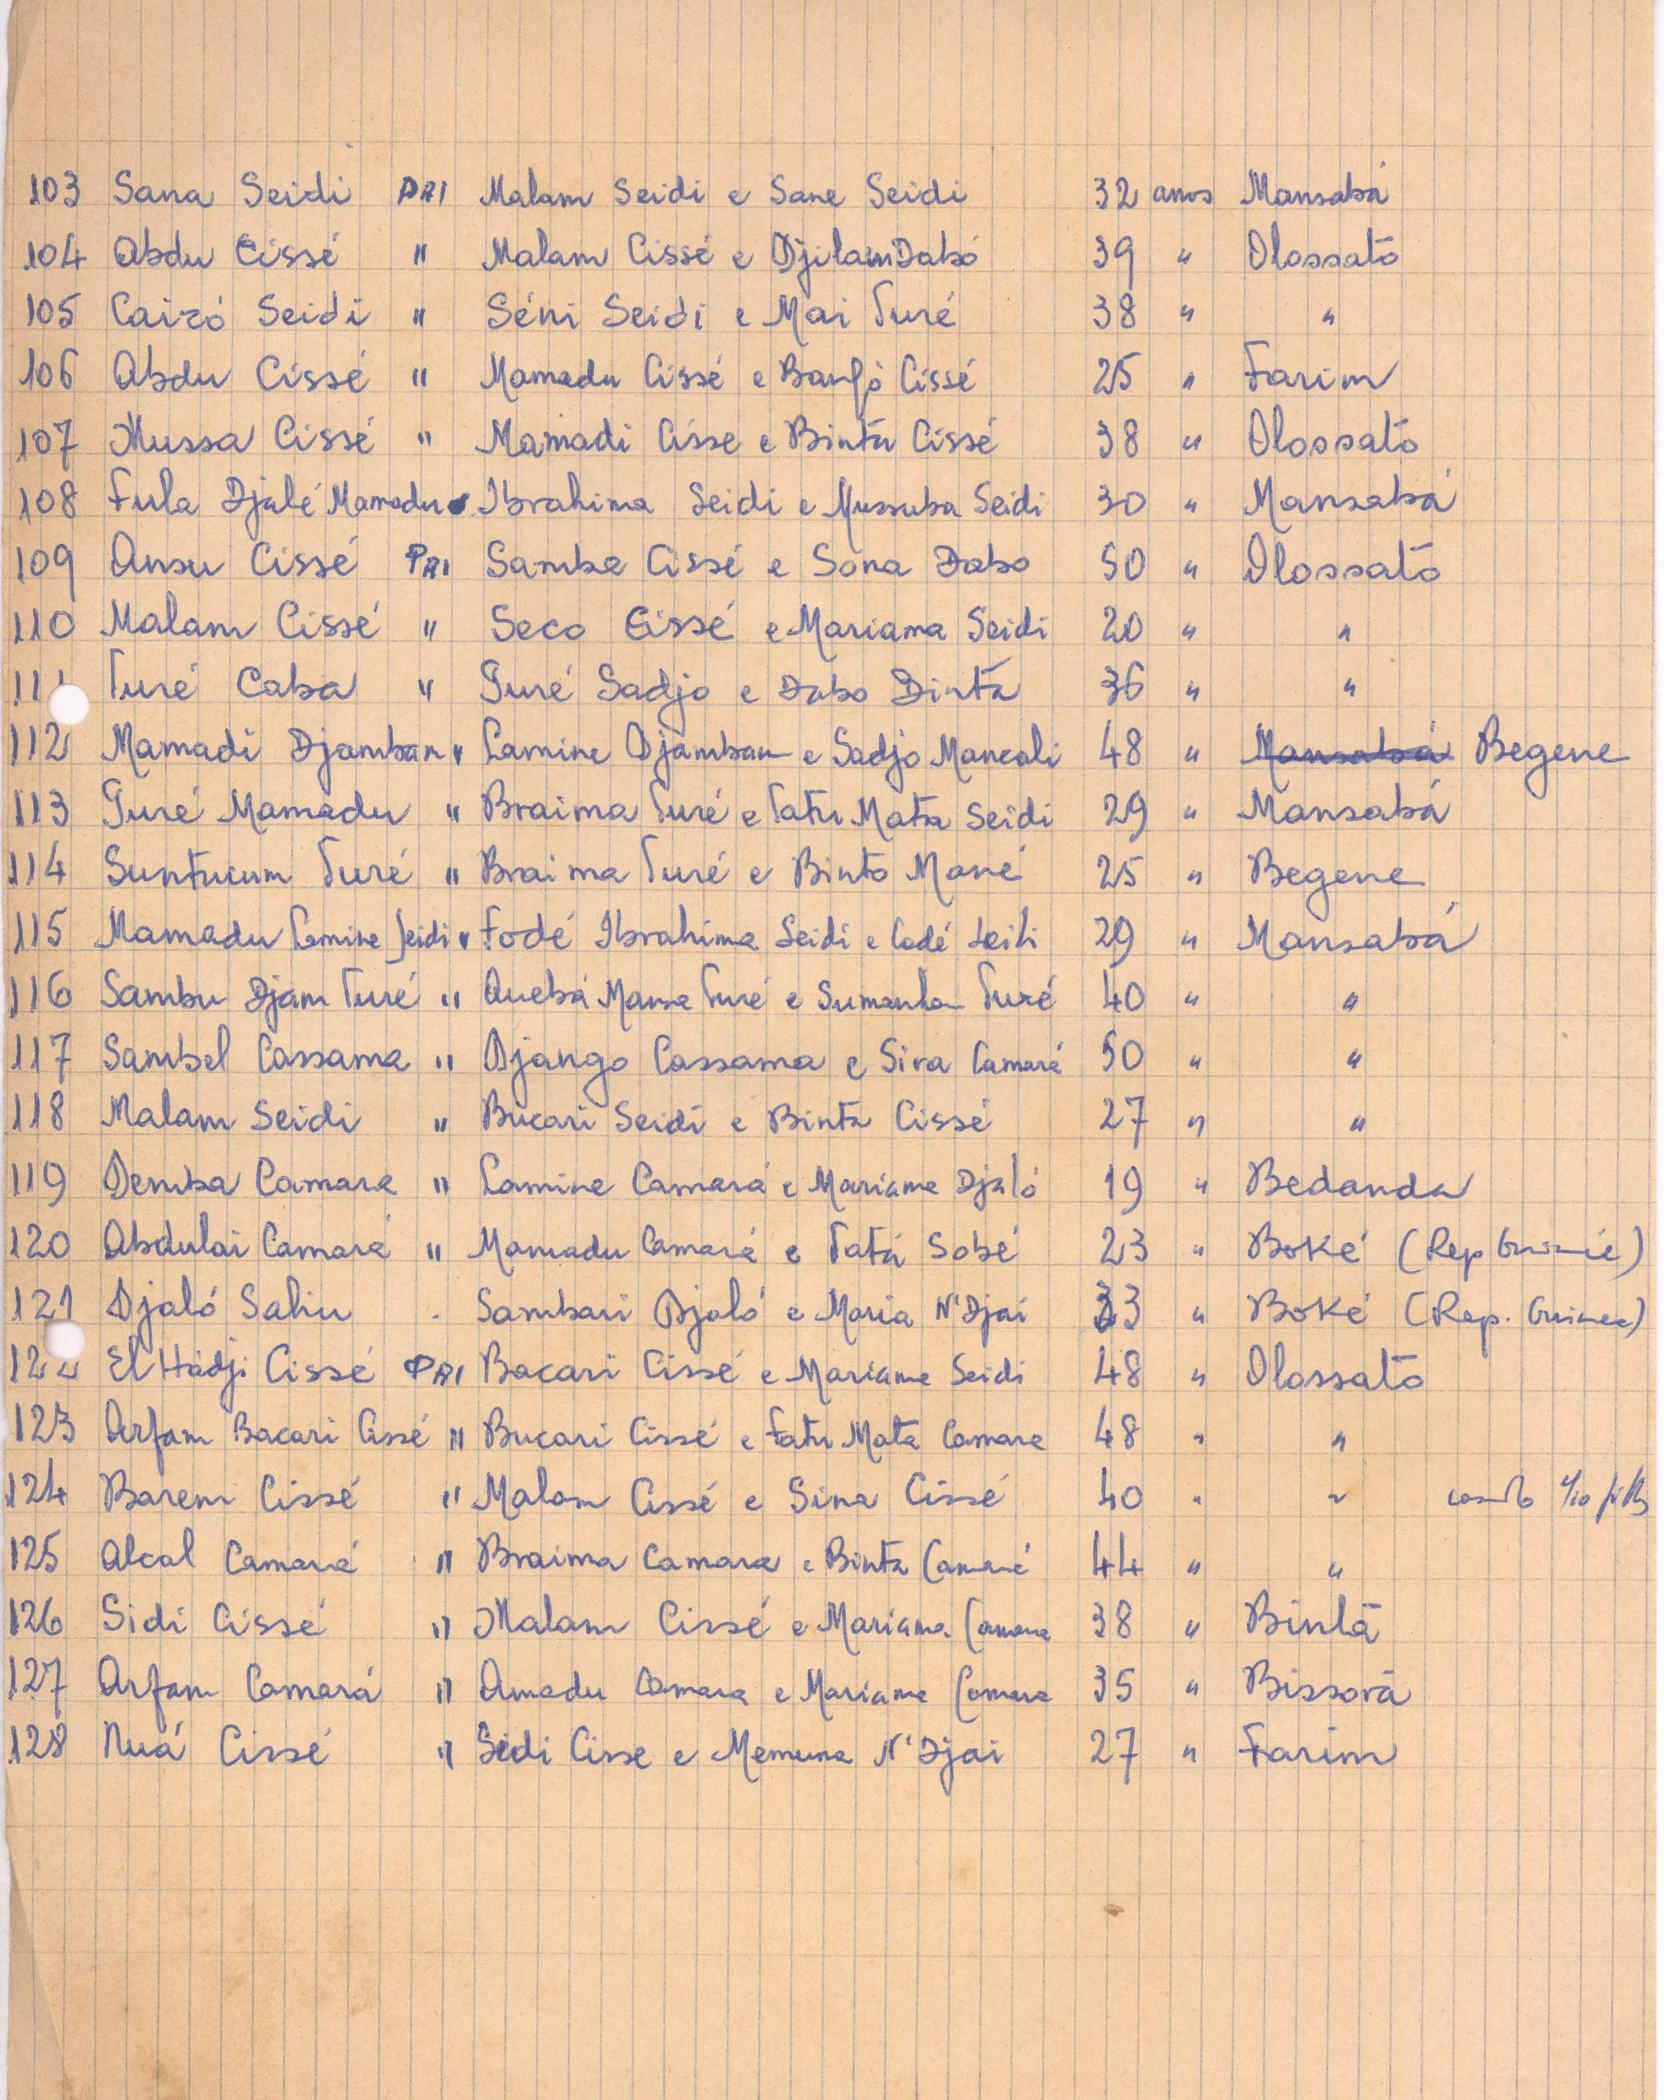 103 Sana Seidi PAI Malam Seidi e Sane Seidi 32 anos Mansabá
104 Abdu Cissé " Malam Cissé e Djilam Dabó 39 " Olossato
105 Cairó Seidi " Séni Seidi e Mai Turé 38 " "
106 Abdu Cissé " Mamadu Cissé e Cissé 25 " Farim
107 Mussa Cissé " Mamadi Cisse e Binta Cissé 38 " Olossato
108 Fula Djalé Mamadu Ibrahima Seidi e Mussuba Seidi 30 " Mansabá
109 Ansu Cissé PAI Samba Cissé e Sona Dabo 50 " Olossato
110 Malam Cissé " Seco Cissé e Mariama Seidi 20 " "
111 Turé Caba " Turé Sadjo e Dabo Dinta 36 " "
112 Mamadi Djamban " Lamine Djamban e Sadjo Mancali 48 " Mansabá Begene
113 Turé Mamadu " Braima Turé e Fatu Mata Seidi 29 " Mansabá
114 Suntucum Turé " Braima Turé e Binto Mané 25 " Begene
115 Mamadu Lamine Seidi " Fodé Ibrahima Seidi e Codé Seidi 29 " Mansabá
116 Sambu Djam Turé " Quebá Mansa Turé e Turé 40 " "
117 Sambel Cassama " Django Cassama e Sira Camará 50 " "
118 Malam Seidi " Bucari Seidi e Binta Cissé 27 " "
119 Demba Camara " Lamine Camará e Mariama Djaló 19 " Bedanda
120 Abdulai Camará " Mamadu Camará e Fatá Sobé 23 " Boké (Rep Guinée)
121 Djaló Saliu . Sambari Djaló e Maria N'Djai 33 " Boké (Rep. Guinee)
122 El Hadji Cissé PAI Bacari Cissé e Mariama Seidi 48 " Olossato
123 Arfam Bacari Cissé " Bucari Cissé e Fatu Mata Camara 48 " "
124 Barem Cissé " Malam Cissé e Sina Cissé 40 " "
125 Alcal Camará " Braima Camara e Binta Camará 44 " "
126 Sidi Cissé " Malam Cissé e Mariama Camara 38 " Bintã
127 Arfam Camará " Amadu Camara e Mariama Camara 35 " Bissorã
128 Nuá Cissé " Sidi Cisse e Memuna N'Djai 27 " Farim